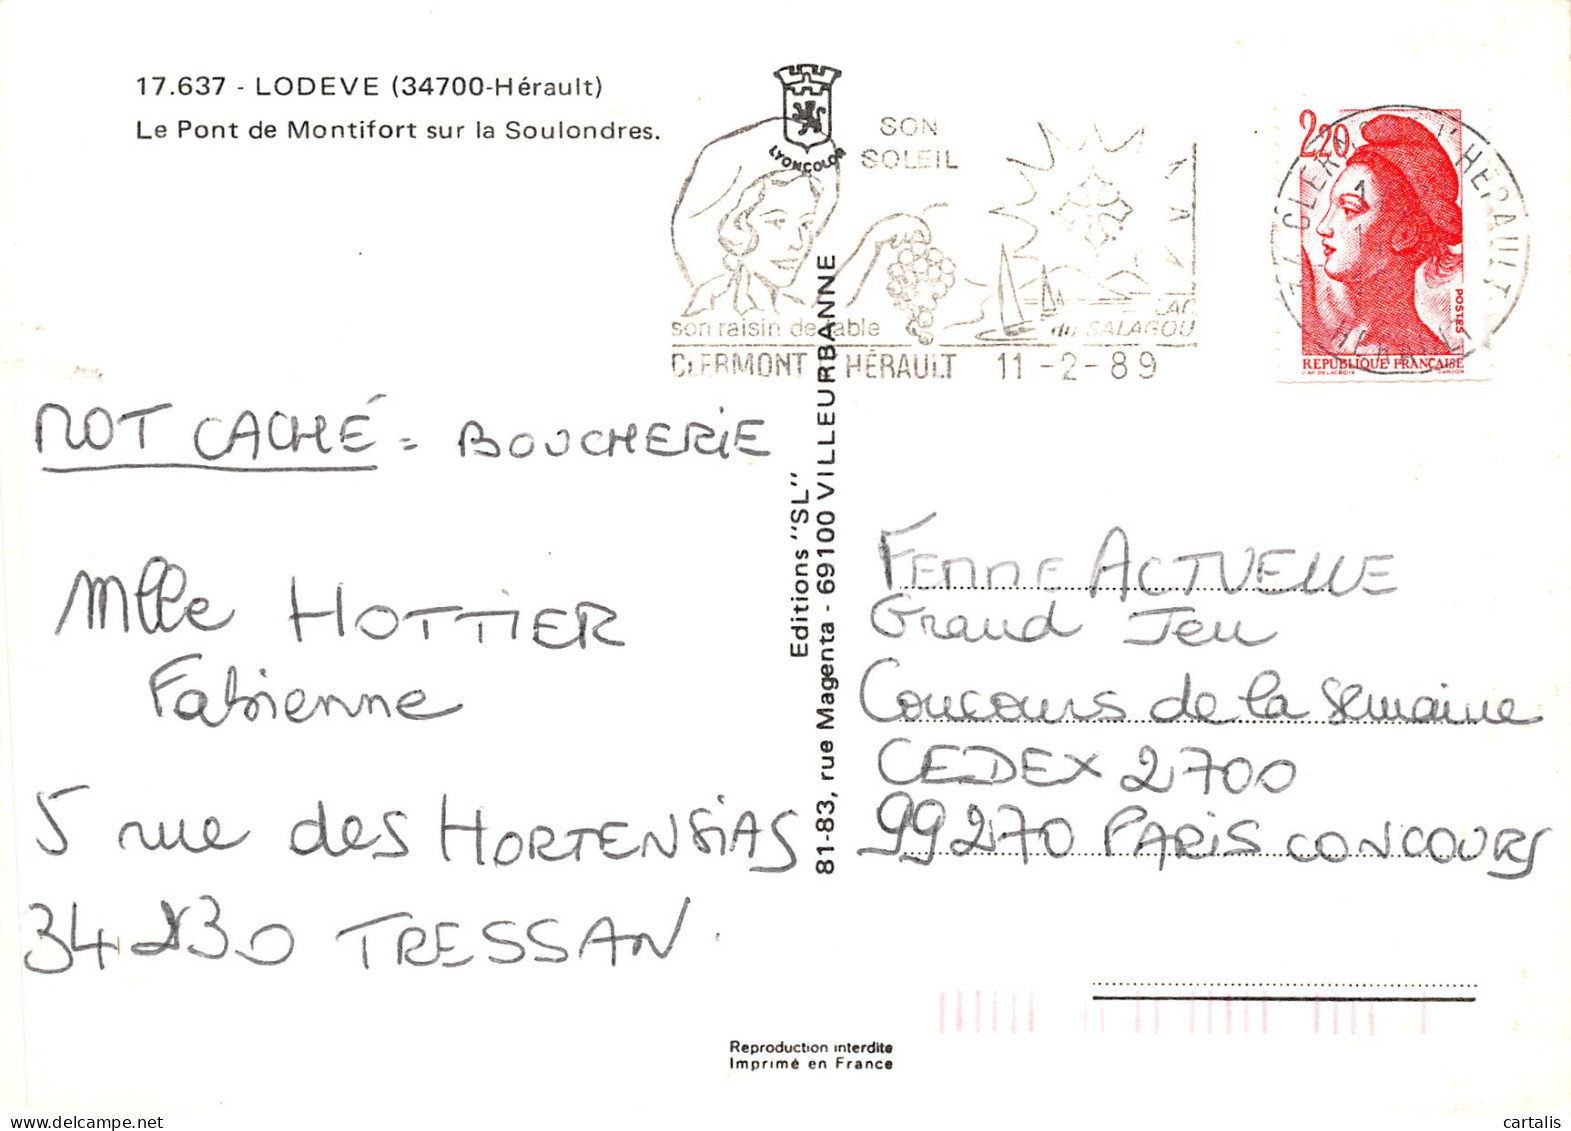 17.637 - LODEVE (34700-Hérault)
Le Pont de Montifort sur la Soulondres.
LYONCOLOR
SON
SOLEIL
son raisin de table
LAC
du SALAGOU
CLERMONT L'HÉRAULT 11-2-89
2,20
POSTES
REPUBLIQUE FRANÇAISE
D'AP. DELACROIX GANDON
34 CLERMONT L'HERAULT
HERAULT
MOT CACHÉ = BOUCHERIE
Mlle HOTTIER
Fabienne
5 rue des HORTENSIAS
34230 TRESSAN.
Editions "SL"
81-83, rue Magenta - 69100 VILLEURBANNE
FEMME ACTUELLE
Grand Jeu
Concours de la semaine
CEDEX 2700
99270 PARIS CONCOURS
Reproduction interdite
Imprimé en France
delcampe.net
cartalis